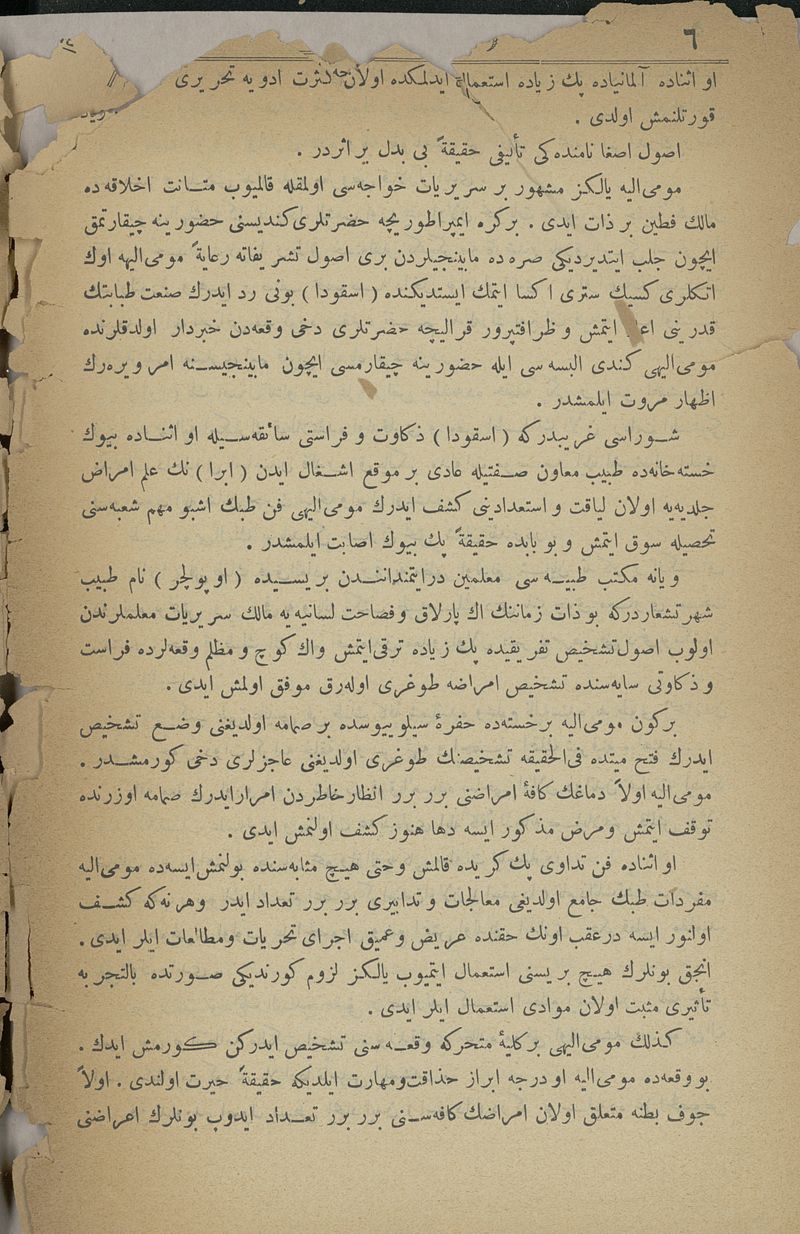 ٦
او اثناده آلمانیاده پك زیاده استعمال ایدلمكده اولان كثرت ادویه تحریری
قورتلنمش اولدی .
اصول اصغا نامنده‌كی تألیفی حقیقةً بی بدل بر اثردر .
مومی‌الیه یالكز مشهور بر سریریات خواجه‌سی اولمقله قالمیوب متـانت اخلاقه ده
مالك فطین بر ذات ایدی . بركره ایمپراطوریچه حضرتلری كندیسنی حضورینه چیقارتمق
ایچون جلب ایتدیردیكی صره ده مابینجیلردن بری اصول تشریفاته رعایةً مومی‌الیهه اوك
اتكلری كسیك ستری اكسا ایتمك ایستدیكنده ( اسقودا ) بونی رد ایدرك صنعت طبابتك
قدرینی ایتمش و ظرافتپرور قرالیچه حضرتلری دخی وقعه‌دن خبردار اولدقلرنده
مومی‌الیهی كندی البسه سی ایله حضورینه چیقارمسی ایچون مابینجیسـنه امر ویره‌رك
اظهار مروت ایلمشدر .
شـوراسی غریبدركه ( اسقودا ) ذكاوت و فراستی سائقه‌سـیله او اثنـاده بیوك
خسته‌خانه‌ده طبیب معاون صـفتیله عادی بر موقع اشـغال ایدن ( ابرا ) نك علم امراض
جلدیه‌یه اولان لیاقت و استعدادینی كشف ایدرك مومی‌الیهی فن طبك اشبو مهم شعبه‌سنی
تحصیله سوق ایتمش و بو بابده حقیقةً پك بیوك اصابت ایلمشدر .
ویانه مكتب طبیـه سی معلمین درایتمنداننـدن بریسـیده ( اوپولچر ) نام طبیب
شهرتشعاردركه بو ذات زماننك اك پارلاق و فصاحت لسانیه‌یه مالك سریریات معلملرندن
اولوب اصول تشخیص تفریقیده پك زیاده ترقی ایتمش واك كوچ و مظلم وقعه‌لرده فراست
و ذكاوتی سایه‌سنده تشخیص امراضه طوغری اوله‌رق موفق اولمش ایدی .
بركون مومی‌الیه برخسته‌ده حفرهٔ سیلوییوسده بر صمامه اولدیغنی وضـع تشخیص
ایدرك فتح میتده فی‌الحقیقه تشخیصنك طوغری اولدیغنی عاجزلری دخی كورمشـدر .
مومی‌الیه اولاً دماغك كافهٔ امراضنی برر برر انظار خاطردن امرار ایدرك صمامه اوزرنده
توقف ایتمش ومرض مذكور ایسه دها هنوز كشف اولنمش ایدی .
او اثناده فن تداوی پك كریده قالمش وحتی هیـچ مثابه‌سنده بولنمش ایسه‌ده مومی‌الیه
مفردات طبك جامع اولدیغی معالجات و تدابیری برر برر تعداد ایدر وهر نه‌كه كشـف
اولنور ایسه درعقب اونك حقنده عریض و عمیق اجرای تحریات ومطالعات ایلر ایدی .
انجق بونلرك هیـچ بریسنی استعمال ایتمیوب یالكز لزوم كورندیكی صـورتده بالتجربه
تأثیری مثبت اولان موادی استعمال ایلر ایدی .
كذلك مومی‌الیهی بركلیهٔ متحركه وقعـه سنی تشخیص ایدركن كـورمش ایدك .
بو وقعه‌ده مومی‌الیه او درجه ابراز حذاقت ومهارت ایلدیكه حقیقةً حیرت اولندی . اولاً
جوف بطنه متعلق اولان امراضك كافه‌سـنی برر برر تعـداد ایدوب بونلرك اعراضنی